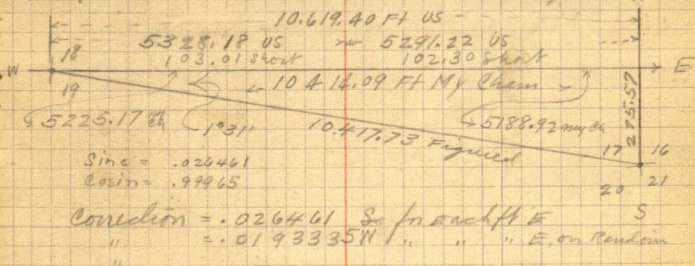 10.619.40 Ft US
5328.18 US 5291.22 US
18
103.01 Short 102.30 Short
W E
10414.09 Ft My Chain
19
5225.17 my Ch 1°31" 5188.92 my Ch
10.417.73 Figured
275.57
17 16
20 21
S
Sine = .026461
Cosin = .99965
Correction = .026461 So for Each ft E
" = .0193335 W " " " E, on Random
"